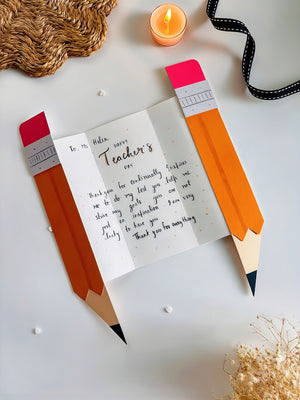 To, Ms Helen
HAPPY
Teacher's
DAY
Thank you for continually
me to do my best you help me
my goals you are not
just an inspiration I am very
lucky to have you
Thank you for everything